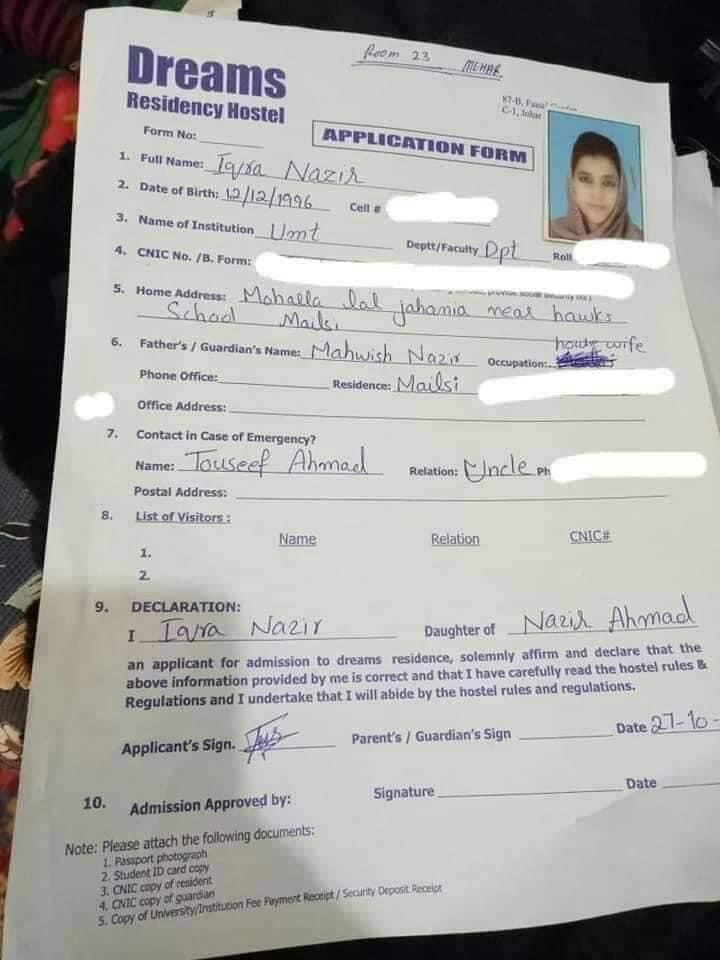 Room 23 MEHAR
Dreams
Residency Hostel
87-B,
C-1, Johar
Form No:
APPLICATION FORM
1. Full Name: Iqra Nazir
2. Date of Birth: 12/12/1996 Cell #
3. Name of Institution Umt Deptt/Faculty Dpt Roll
4. CNIC No. /B. Form:
5. Home Address: Mohalla lal jahania near hawks
School Mailsi
6. Father's / Guardian's Name: Mahwish Nazir Occupation: house wife
Phone Office: Residence: Mailsi
Office Address:
7. Contact in Case of Emergency?
Name: Touseef Ahmad Relation: Uncle Ph
Postal Address:
8. List of Visitors :
Name Relation CNIC#
1.
2.
9. DECLARATION:
I Iqra Nazir Daughter of Nazir Ahmad
an applicant for admission to dreams residence, solemnly affirm and declare that the
above information provided by me is correct and that I have carefully read the hostel rules &
Regulations and I undertake that I will abide by the hostel rules and regulations.
Applicant's Sign. Parent's / Guardian's Sign Date 27-10-
10. Admission Approved by: Signature Date
Note: Please attach the following documents:
1. Passport photograph
2. Student ID card copy
3. CNIC copy of resident
4. CNIC copy of guardian
5. Copy of University/Institution Fee Payment Receipt / Security Deposit Receipt